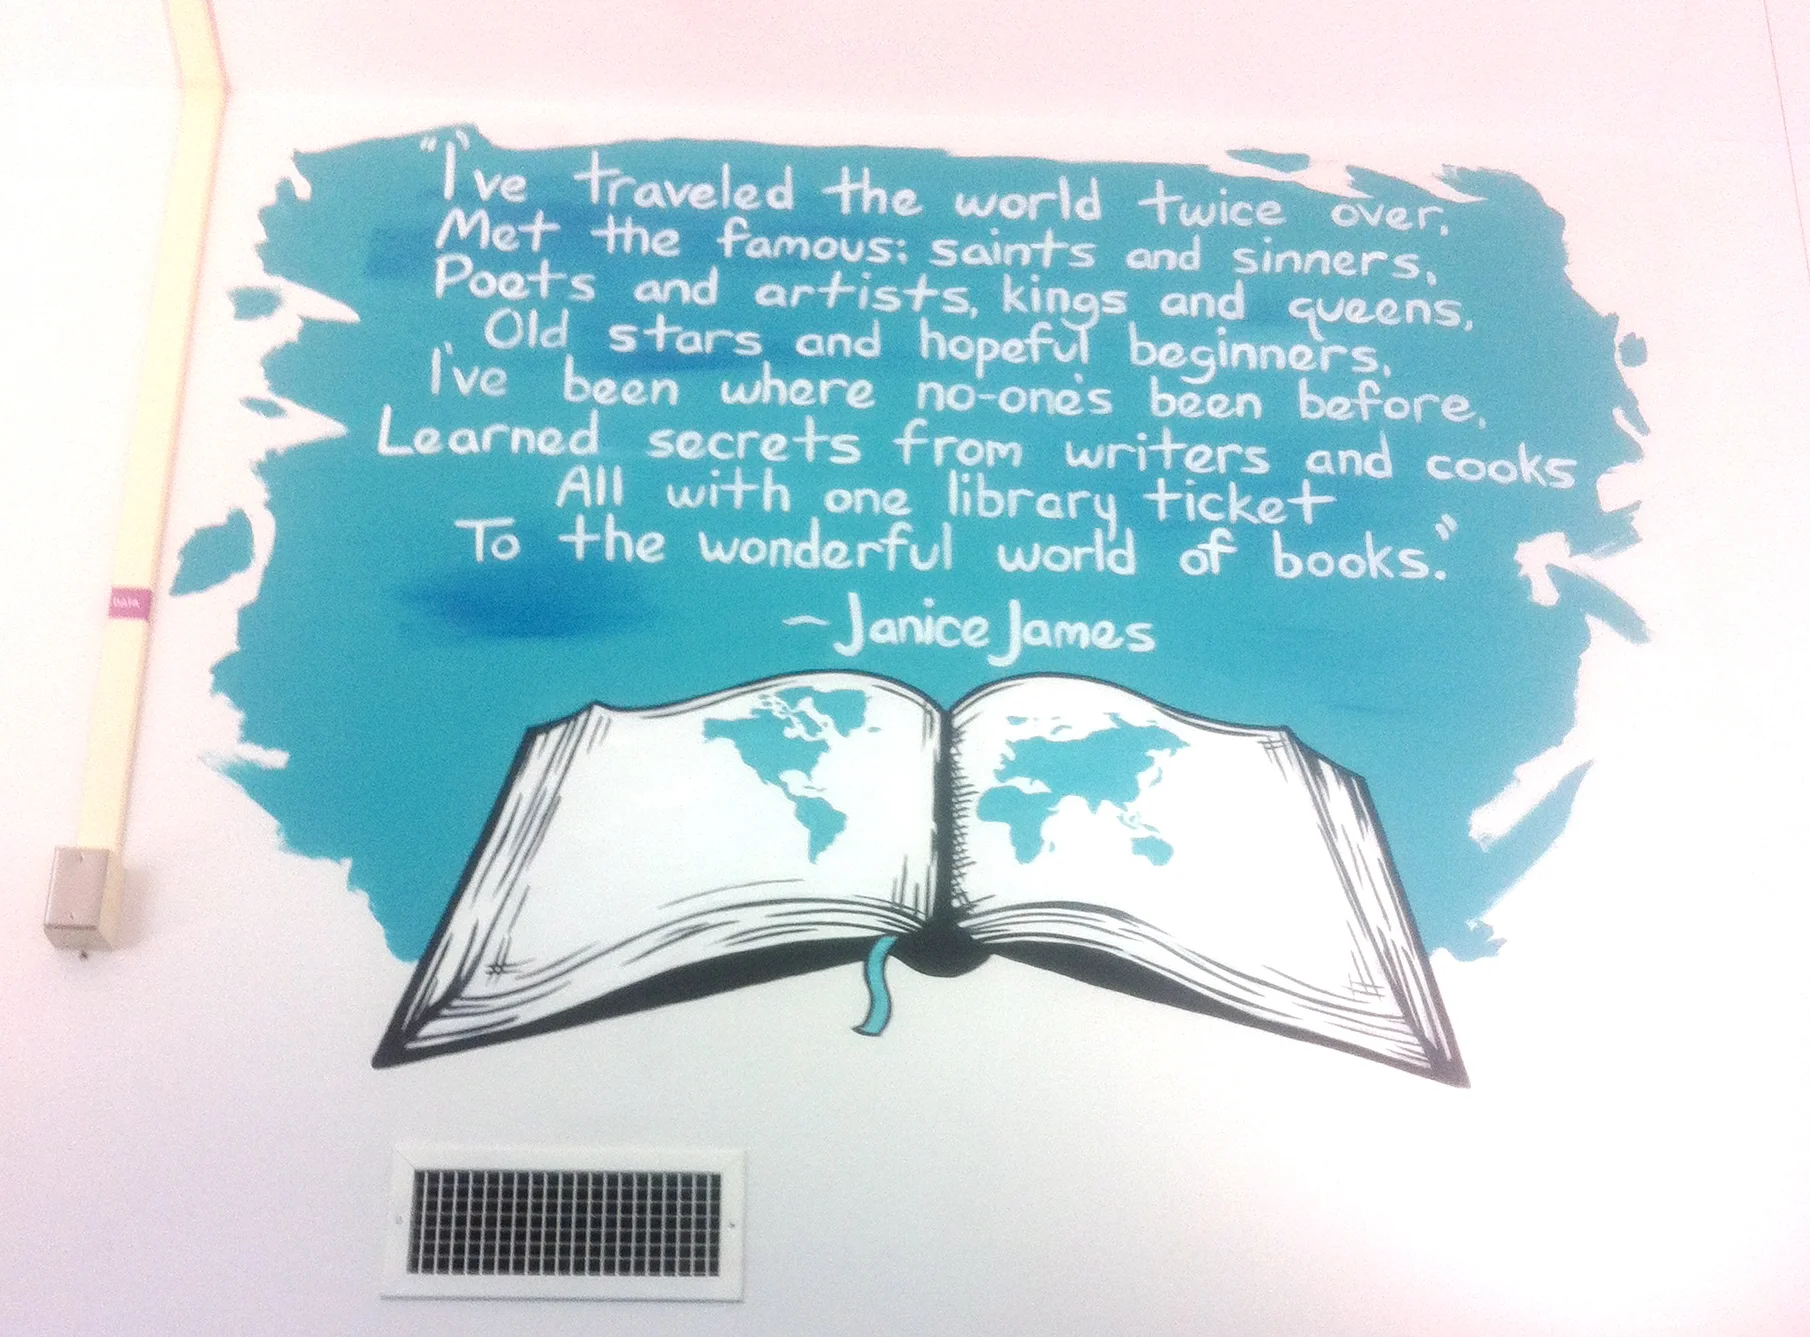 "I've traveled the world twice over,
Met the famous: saints and sinners,
Poets and artists, kings and queens,
Old stars and hopeful beginners,
I've been where no-one's been before,
Learned secrets from writers and cooks
All with one library ticket
To the wonderful world of books."
~Janice James